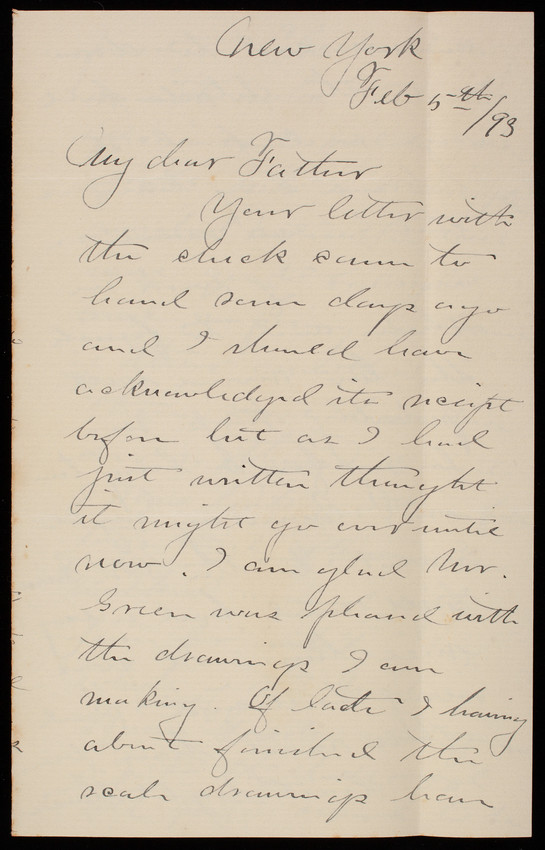 New York
Feb 5th/93
My dear Father
Your letter with
the check came to
hand some days ago
and I should have
acknowledged its receipt
before but as I had
just written thought
it might go over until
now. I am glad Mr.
Green was pleased with
the drawings I am
making. Of late I having
about finished the
scale drawings have